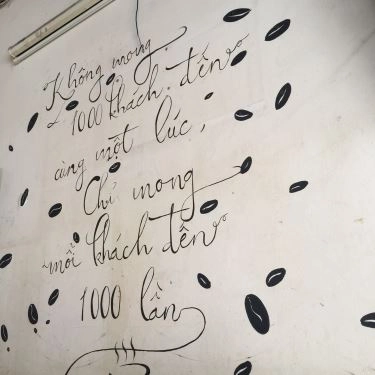 Không mong
1000 khách đến
cùng một lúc,
Chỉ mong
mỗi khách đến
1000 lần